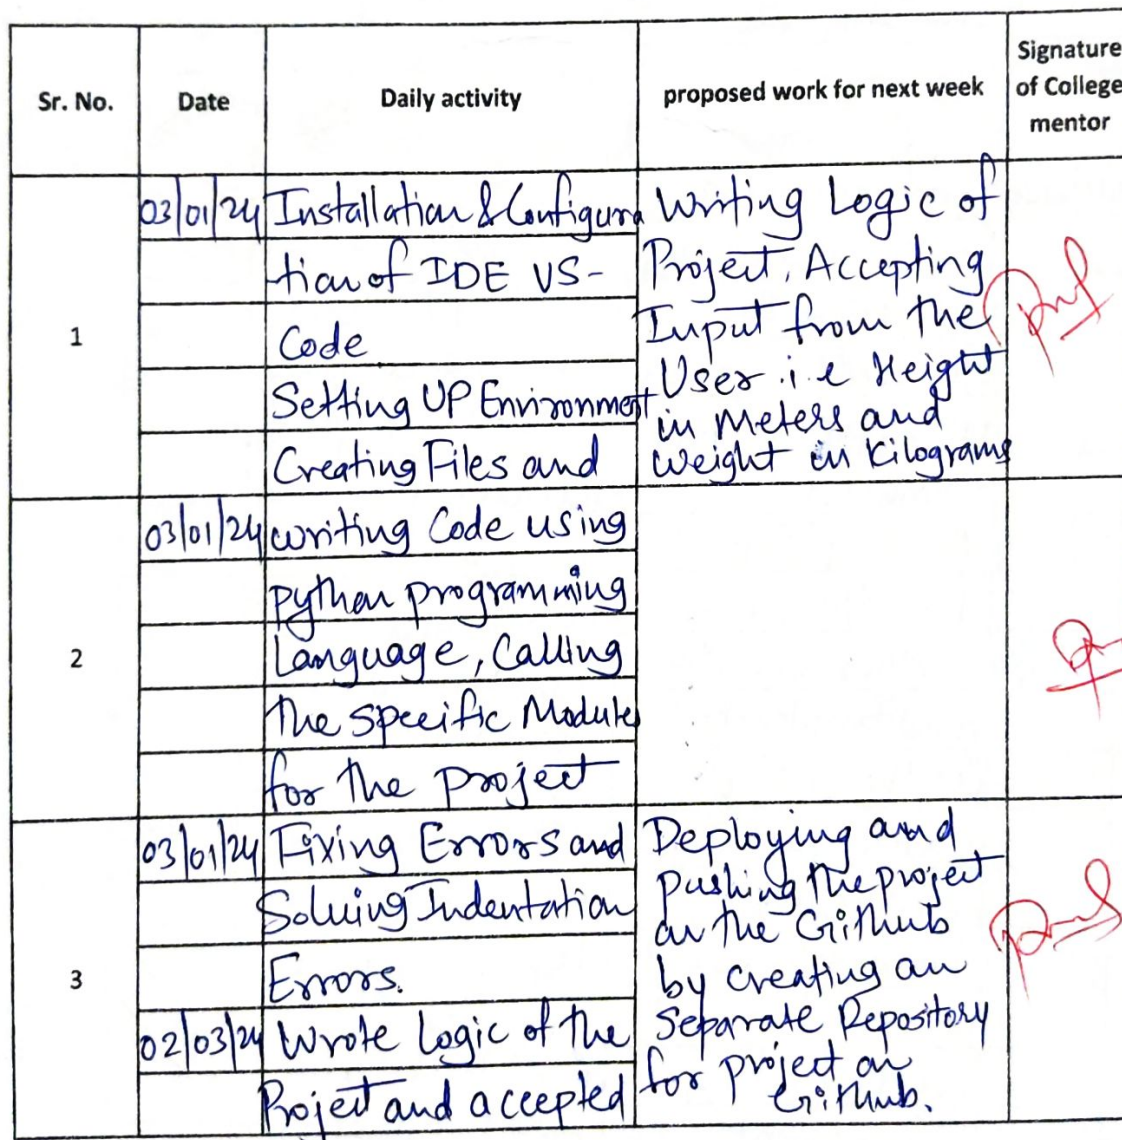 Sr. No. Date Daily activity proposed work for next week Signature of College mentor
1
03/01/24 Installation & Configura
tion of IDE VS-
Code
Setting UP Environment
Creating Files and
Writing Logic of
Project. Accepting
Input from the
User i.e Height
in Meters and
Weight in Kilograms
2
03/01/24 writing Code using
python programming
Language, Calling
the specific Modules
for the project
3
03/01/24 Fixing Errors and
Solving Indentation
Errors.
02/03/24 Wrote Logic of the
Project and accepted
Deploying and
pushing the project
on the GitHub
by creating an
Separate Repository
for project on
GitHub.